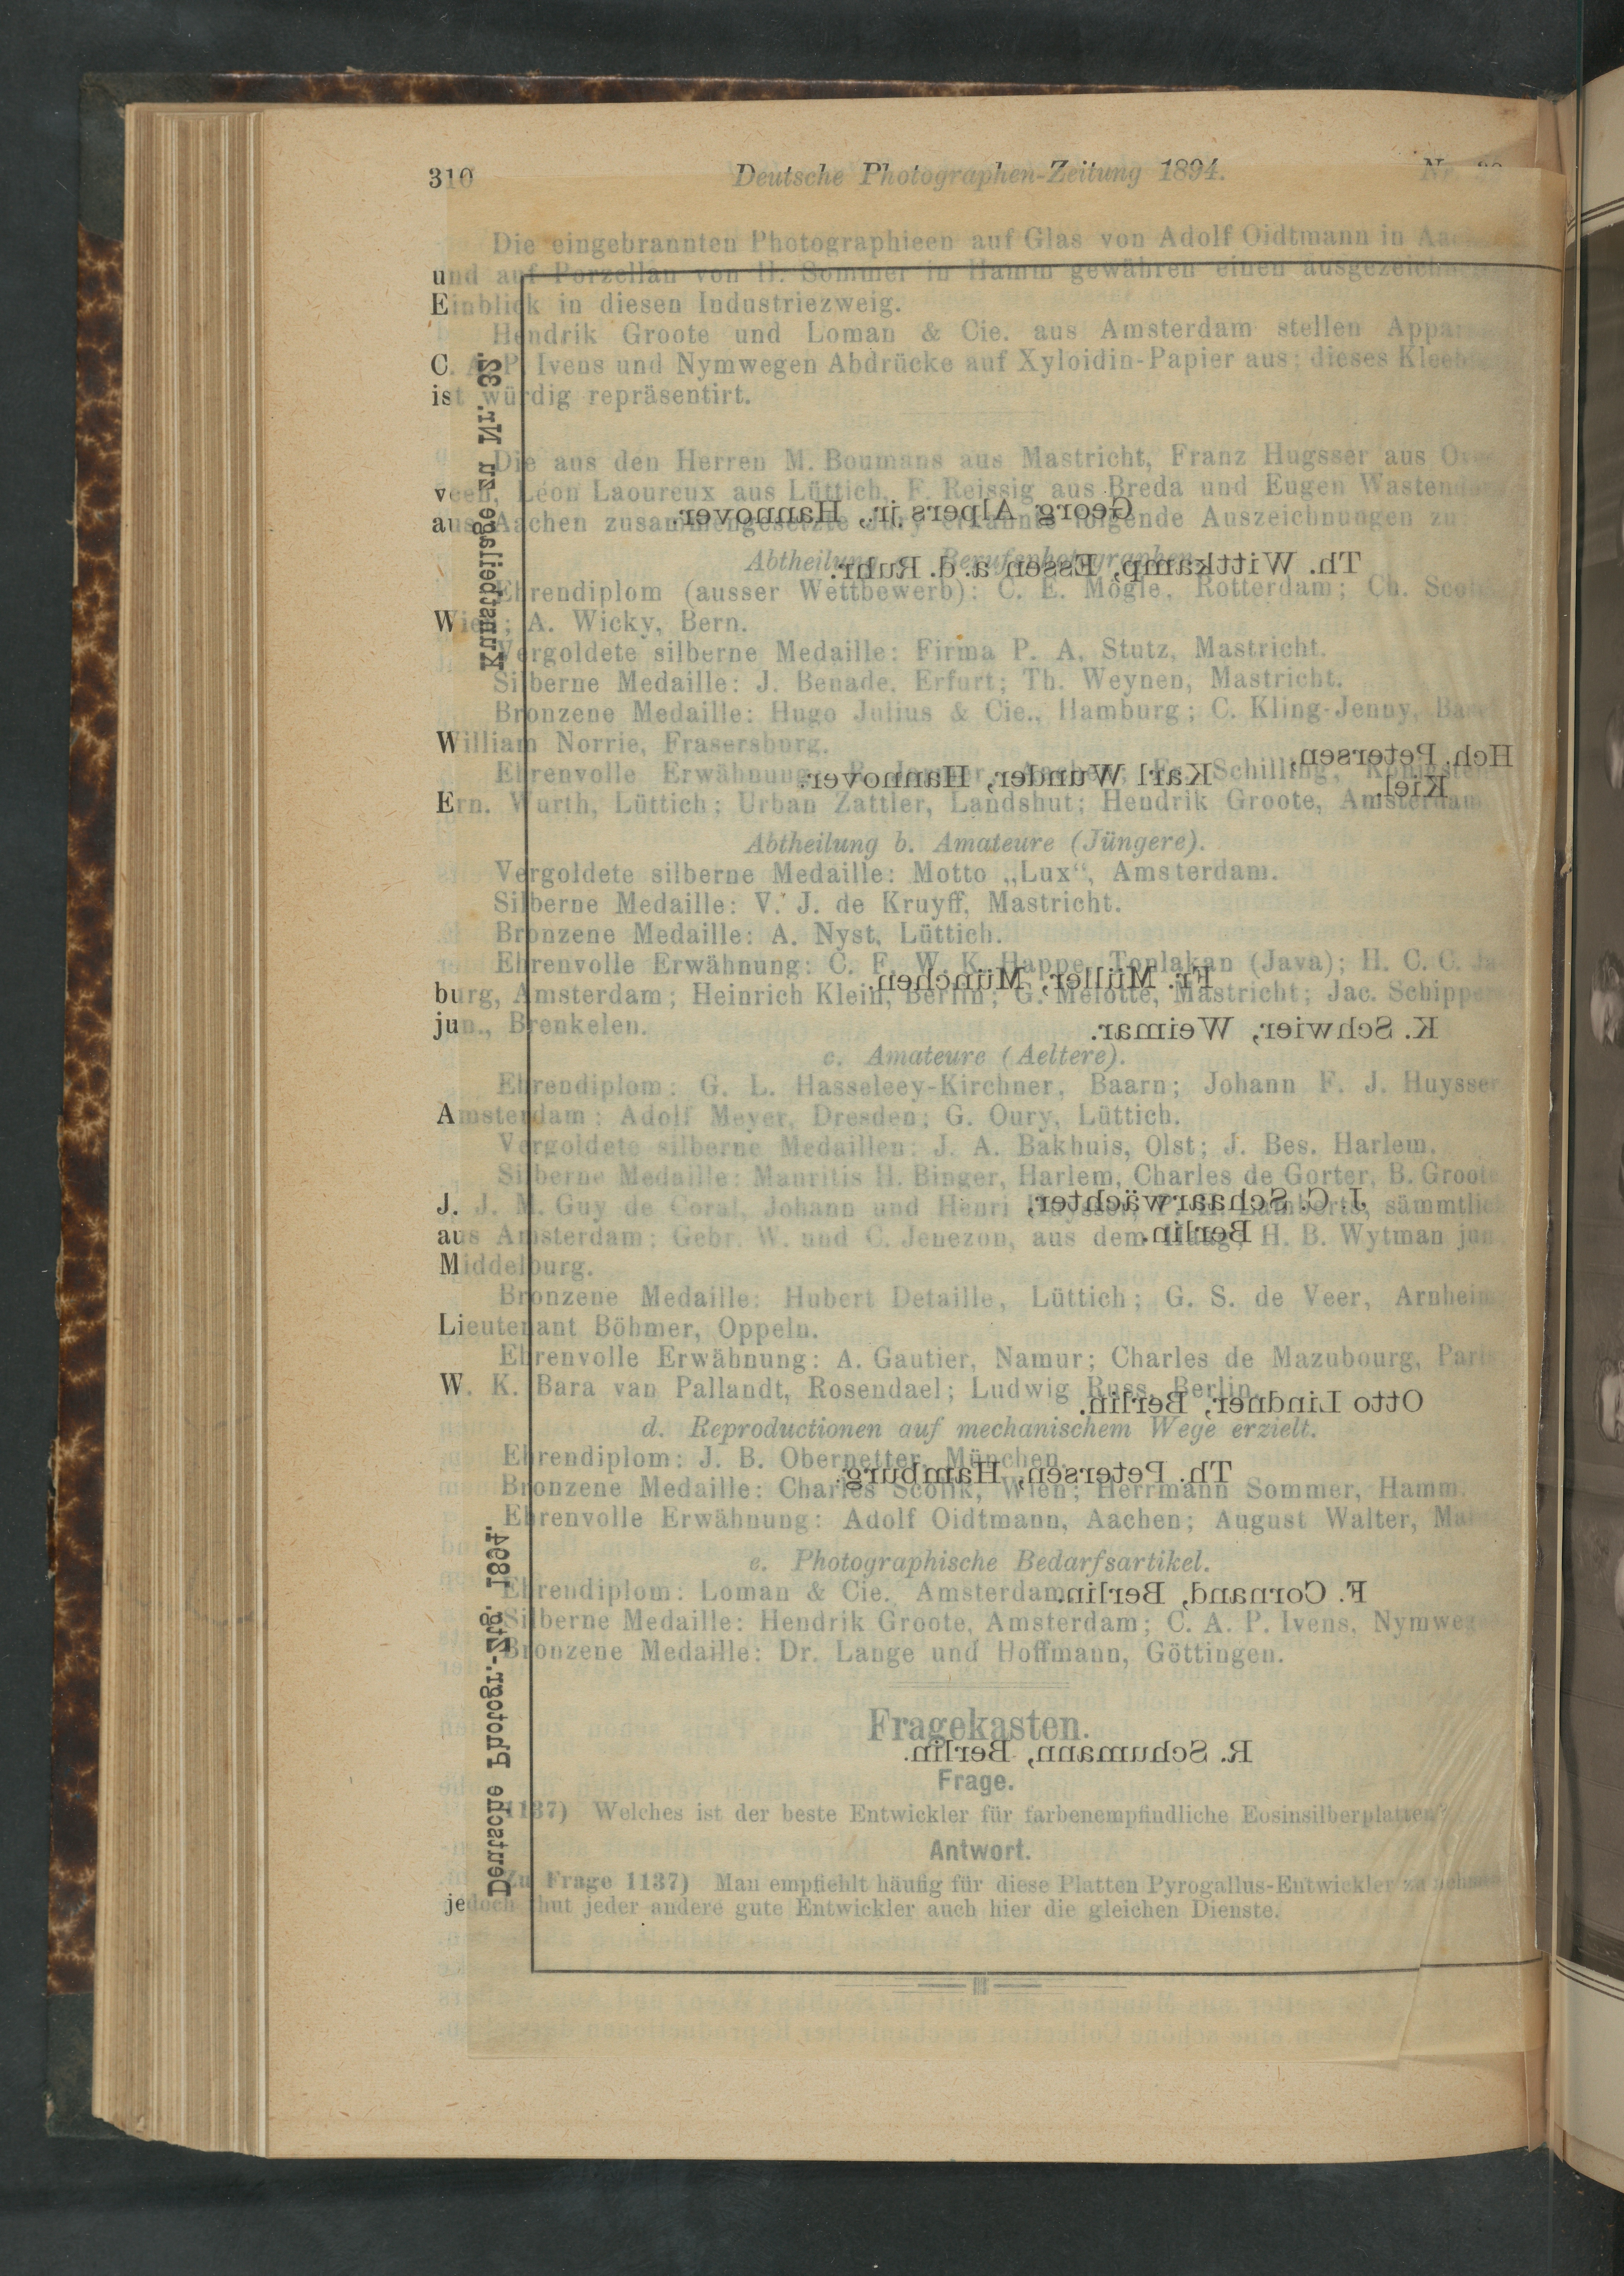 310 Deutsche Photographen-Zeitung 1894. Nr.
Die eingebrannten Photographieen auf Glas von Adolf Oidtmann in
und auf Porzellan von H. Sommer in Hamm gewähren einen
Einblick in diesen Industriezweig.
Hendrik Groote und Loman & Cie. aus Amsterdam stellen
C. A. P. Ivens und Nymwegen Abdrücke auf Xyloidin-Papier aus; dieses
ist würdig repräsentirt.
Die aus den Herren M. Boumans aus Mastricht, Franz Hugsser aus
veen, Léon Laoureux aus Lüttich, F. Reissig aus Breda und Eugen
aus Aachen zusammengesetzte Jury erkannte folgende Auszeichnungen zu
Georg Alpers jr., Hannover.
Abtheilung a. Berufsphotographen.
Th. Wittkamp, Essen a. d. Ruhr.
Ehrendiplom (ausser Wettbewerb): C. E. Mögle, Rotterdam; Ch.
Wien; A. Wicky, Bern.
Vergoldete silberne Medaille: Firma P. A. Stutz, Mastricht.
Silberne Medaille: J. Benade, Erfurt; Th. Weynen, Mastricht.
Bronzene Medaille: Hugo Julius & Cie., Hamburg; C. Kling-Jenny,
William Norrie, Frasersburg.
Hch. Petersen,
Kiel.
Ehrenvolle Erwähnung: Schilling,
Karl Wunder, Hannover.
Ern. Wurth, Lüttich; Urban Zattler, Landshut; Hendrik Groote, Amsterdam
Abtheilung b. Amateure (Jüngere).
Vergoldete silberne Medaille: Motto „Lux“, Amsterdam.
Silberne Medaille: V. J. de Kruyff, Mastricht.
Bronzene Medaille: A. Nyst, Lüttich.
Ehrenvolle Erwähnung: C. F. W. K. Happe, Toplakan (Java); H. C. C.
Fr. Müller, München.
burg, Amsterdam; Heinrich Klein, Berlin; G. Melotte, Mastricht; Jac.
jun., Brenkelen.
K. Schwier, Weimar.
c. Amateure (Aeltere).
Ehrendiplom: G. L. Hasseleey-Kirchner, Baarn; Johann F. J. Huysser
Amsterdam; Adolf Meyer, Dresden; G. Oury, Lüttich.
Vergoldete silberne Medaillen: J. A. Bakhuis, Olst; J. Bes. Harlem.
Silberne Medaille: Mauritis H. Binger, Harlem, Charles de Gorter, B. Groote
J. J. M. Guy de Coral, Johann und Henri sämmtlich
J. C. Schaarwächter,
Berlin.
aus Amsterdam; Gebr. W. und C. Jenezon, aus dem Haag; H. B. Wytman jun.
Middelburg.
Bronzene Medaille: Hubert Detaille, Lüttich; G. S. de Veer, Arnheim
Lieutenant Böhmer, Oppeln.
Ehrenvolle Erwähnung: A. Gautier, Namur; Charles de Mazubourg, Paris
W. K. Bara van Pallandt, Rosendael; Ludwig Russ, Berlin.
Otto Lindner, Berlin.
d. Reproductionen auf mechanischem Wege erzielt.
Ehrendiplom: J. B. Obernetter, München.
Th. Petersen, Hamburg.
Bronzene Medaille: Charles Scolik, Wien; Herrmann Sommer, Hamm.
Ehrenvolle Erwähnung: Adolf Oidtmann, Aachen; August Walter,
e. Photographische Bedarfsartikel.
Ehrendiplom: Loman & Cie., Amsterdam.
F. Cornand, Berlin.
Silberne Medaille: Hendrik Groote, Amsterdam; C. A. P. Ivens,
Bronzene Medaille: Dr. Lange und Hoffmann, Göttingen.
Fragekasten.
R. Schumann, Berlin.
Frage.
1137) Welches ist der beste Entwickler für farbenempfindliche Eosinsilberplatten?
Antwort.
Zu Frage 1137) Man empfiehlt häufig für diese Platten Pyrogallus-Entwickler zu nehmen
jedoch thut jeder andere gute Entwickler auch hier die gleichen Dienste.
Deutsche Photogr.-Ztg. 1894.
Kunstbeilage zu Nr. 32.